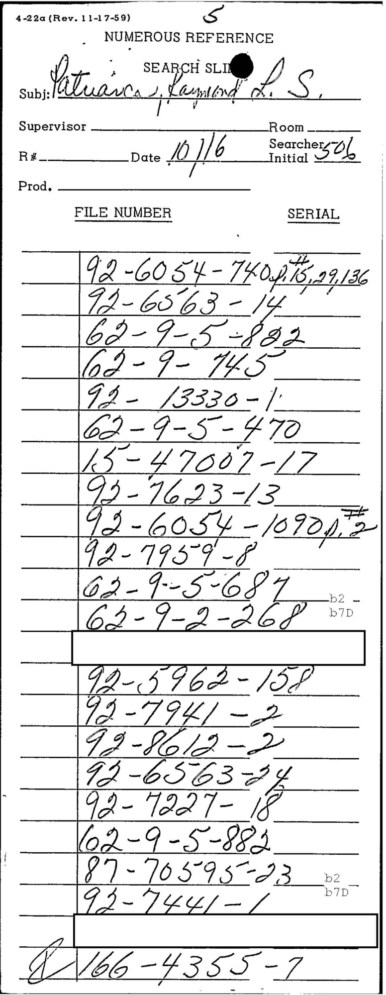 4-22a (Rev. 11-17-59) 5
NUMEROUS REFERENCE
SEARCH SLIP
Subj: Patriarca, Raymond L. S.
Supervisor Room
R# Date 10/16 Searcher Initial 506
Prod.
FILE NUMBER SERIAL
92-6054-740 p.#15,29,136
92-6563-14
62-9-5-822
62-9-745
92-13330-1
62-9-5-470
15-47007-17
92-7623-13
92-6054-1090 p.#2
92-7959-8
62-9-5-687
b2
62-9-2-268 b7D
92-5962-158
92-7941-2
92-8612-2
92-6563-24
92-7227-18
62-9-5-882
87-70595-23 b2
b7D
92-7441-1
166-4355-7